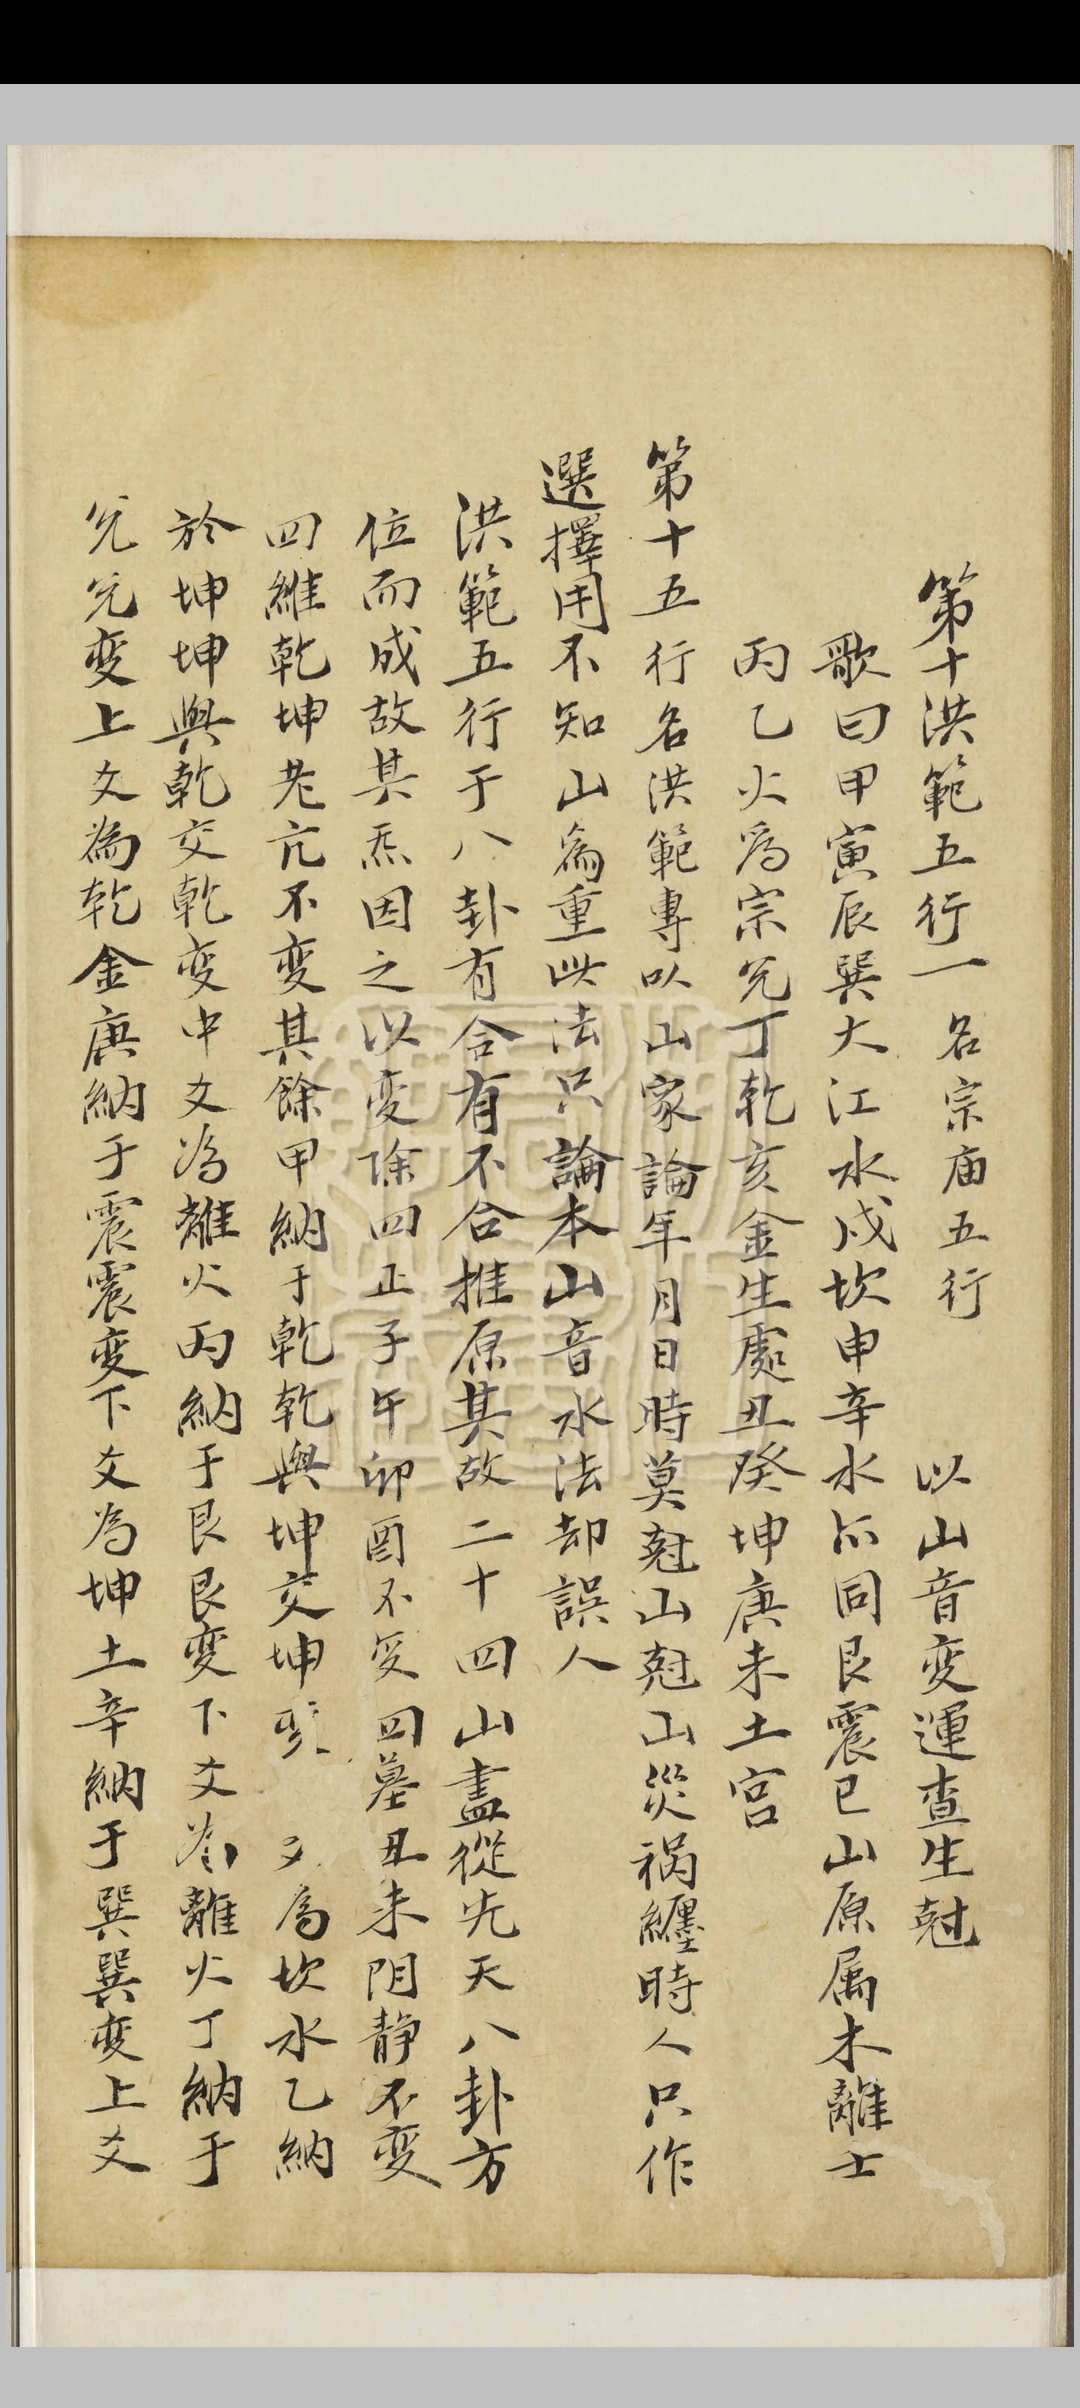 第十洪範五行一名宗庙五行　以山音变運查生尅
歌曰甲寅辰巽大江水戍坎申辛水亦同艮震巳山原属木離士
丙乙火為宗兌丁乾亥金生處丑癸坤庚未土宫
第十五行名洪範專以山家論年月日時莫尅山尅山災祸纏時人只作
選擇用不知山為重此法只論本山音水法却誤人
洪範五行于八卦有合有不合推原其故二十四山盡從先天八卦方
位而成故其炁因之以变除四正子午卯酉不受四墓丑未阴静不变
四維乾坤老亢不变其餘甲納于乾乾與坤交坤為坎水乙納
於坤坤與乾交乾变中爻為離火丙納于艮艮变下爻為離火丁納于
兌兌变上爻為乾金庚納于震震变下爻為坤土辛納于巽巽变上爻